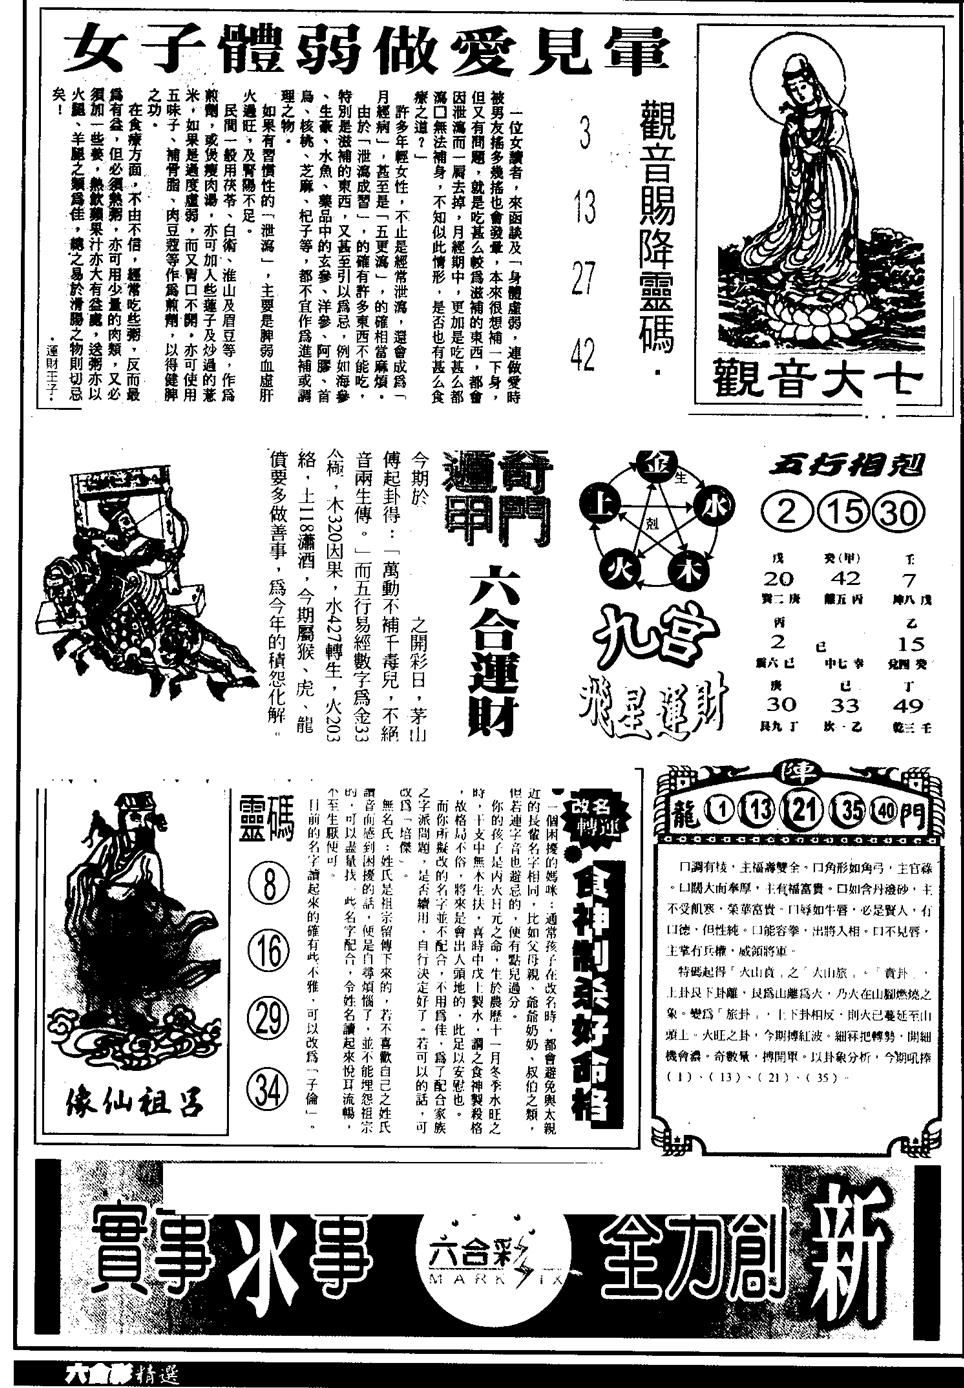 女子體弱做愛見暈
一位女讀者，來函談及「身體虛弱，連做愛時
被男友搖多幾搖也會發暈，本來很想補一下身，
但又有問題，就是吃甚么較為滋補的東西，都會
因泄瀉而一屙去掉，月經期中，更加是吃甚么都
瀉口無法補身，不知似此情形，是否也有甚么食
療之道？」
許多年輕女性，不止是經常泄瀉，還會成為「
月經病」，甚至是「五更瀉」，的確相當麻煩。
由於「泄瀉成習」，的確有許多東西不能吃，
特別是滋補的東西，又甚至引以為忌，例如海參
、生豪、水魚、藥品中的玄參、洋參、阿膠、首
烏、核桃、芝麻、杞子等，都不宜作為進補或調
理之物。
如果有習慣性的「泄瀉」，主要是脾弱血虛肝
火過旺，及腎陽不足。
民間一般用茯苓、白術、淮山及眉豆等，作為
煎劑，或煲瘦肉湯，亦可加入些蓮子及炒過的薏
米，如果是過度虛弱，而又胃口不開，亦可使用
五味子、補骨脂、肉豆蔻等作為煎劑，以得健脾
之功。
在食療方面，不由不信，經常吃些粥，反而最
為有益，但必須熱粥，亦可用少量的肉類，又必
須加一些姜，熱飲蘋果汁亦大有益處，送粥亦以
火腿、羊腿之類為佳，總之易於滑腸之物則切忌
矣！
·運財王子·
觀音賜降靈碼·
3
13
27
42
觀音大士
奇門
遁甲
六合運財
今期於
之開彩日，茅山
傳起卦得：「萬動不補千毒兒，不絕
音兩生傳。」而五行易經數字為金33
火極，木320因果，水427轉生，火203
絡，土118瀟酒，今期屬猴、虎、龍
償要多做善事，為今年的積怨化解。
金
水
木
火
土
生
剋
九宮
飛星運財
五行相剋
2 15 30
戊 癸(甲) 壬
20 42 7
巽二庚 離五丙 坤八戊
丙 乙
2 己 15
震六己 中七辛 兌四癸
庚 己 丁
30 33 49
艮九丁 坎一乙 乾三壬
呂祖仙像
靈碼
8
16
29
34
改名
轉運
食神制杀好命格
一個困擾的媽咪：通常孩子在改名時，都會避免與太親
近的長輩名字相同，比如父母親、爺爺奶奶、叔伯之類，
但若連字音也避忌的，便有點兒過分。
你的孩子是丙火日元之命，生於農歷十一月冬季水旺之
時，干支中無木生扶，喜時中戊土製水，謂之食神製殺格
，故格局不俗，將來是會出人頭地的，此足以安慰也。
而你所擬改的名字並不配合，不用為佳，為了配合家族
之字派問題，是否續用，自行決定好了。若可以的話，可
改為「培傑」。
無名氏：姓氏是祖宗留傳下來的，若不喜歡自己之姓氏
讀音而感到困擾的話，便是自尋煩惱了，並不能埋怨祖宗
的，可以盡量找一些名字配合，令姓名讀起來悅耳流暢，
不至生厭便可。
目前的名字讀起來的確有些不雅，可以改為「子倫」。
陣
龍 1 13 21 35 40 門
口調有枝，主福壽雙全。口角形如角弓，主官祿
。口闊大而奉厚，主有福富貴。口如含丹潑砂，主
不受飢寒，榮華富貴。口辱如牛唇，必是賢人，有
口德，但性純。口能容拳，出將入相。口不見唇，
主掌有兵權，威領將軍。
特碼起得「火山賁」之「火山旅」。「賁卦」，
上卦艮下卦離，艮為山離為火，乃火在山腳燃燒之
象。變為「旅卦」，上下卦相反，則火已蔓延至山
頭上。火旺之卦，今期搏紅波。細冧把轉勢，開細
機會濃。奇數量，搏開單。以卦象分析，今期吼捧
(1)、(13)、(21)、(35)。
實事求事
六合彩
MARK SIX
全力創新
六合彩精選